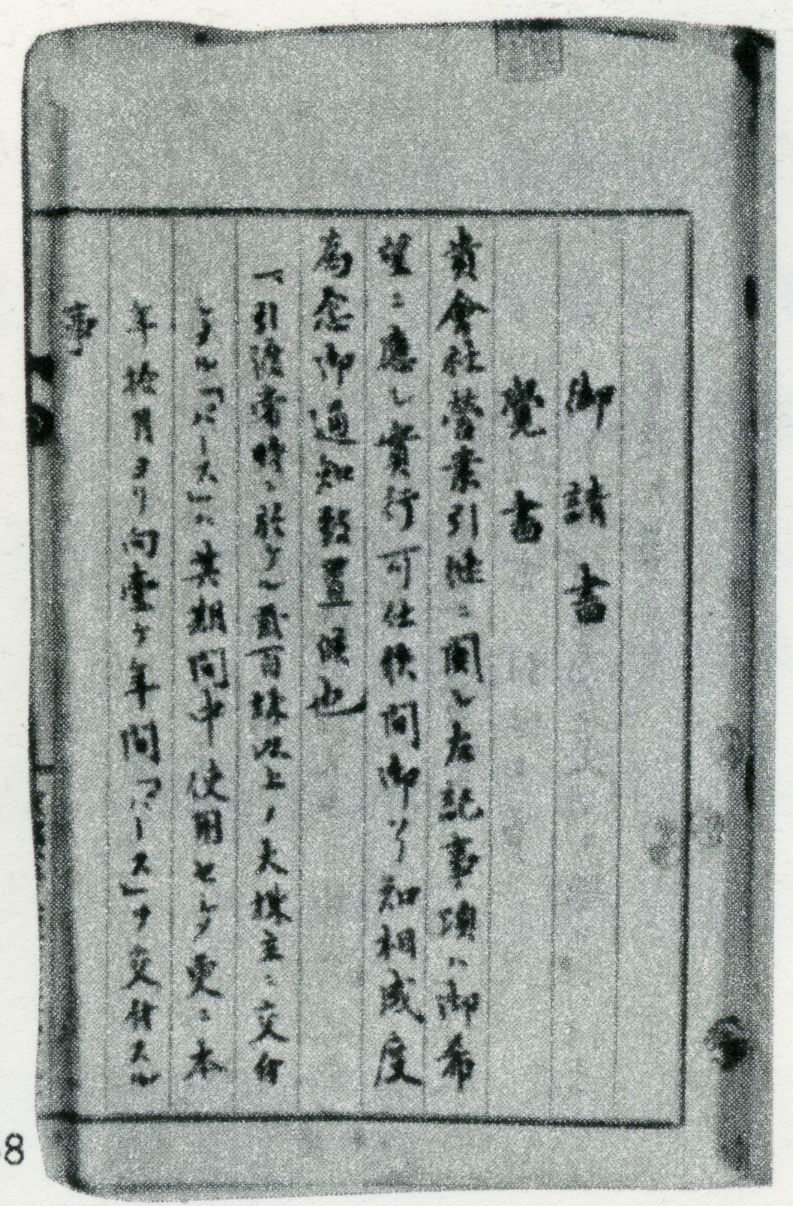 御請書
覺書
貴會社營業引継ニ関シ左記事項ハ御希
望ニ應シ實行可仕候間御了知相成度
為念御通知致置候也
一、引渡當時ニ於ケル貳百株以上ノ大株主ニ交付
シタル「パース」ハ其期間中使用セシメ更ニ本
年拾月ヨリ向壹ヶ年間「パース」ヲ交付スル
事
8